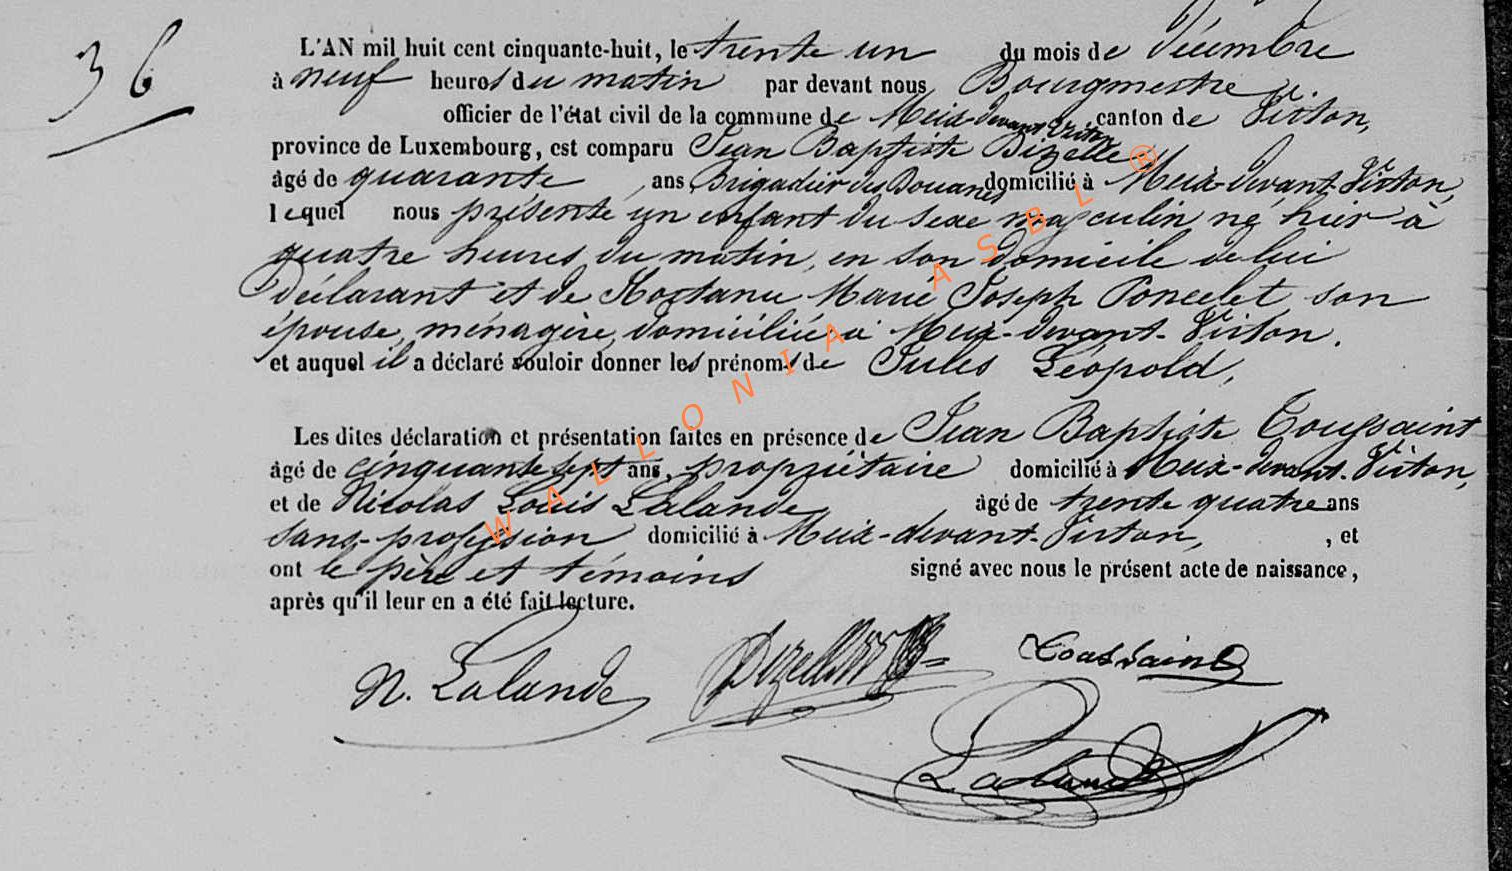 36
L'AN mil huit cent cinquante-huit, le trente un du mois de Décembre
à neuf heures du matin par devant nous Bourgmestre
officier de l'état civil de la commune de Meix-devant-Virton, canton de Virton,
province de Luxembourg, est comparu Jean Baptiste Dizelle
âgé de quarante ans, Brigadier des Douanes domicilié à Meix-devant-Virton,
lequel nous présente un enfant du sexe masculin né hier à
quatre heures du matin, en son domicile de lui
déclarant et de Marie Joseph Poncelet son
épouse, ménagère, domiciliée à Meix-devant-Virton.
et auquel il a déclaré vouloir donner les prénoms de Jules Léopold,
Les dites déclaration et présentation faites en présence de Jean Baptiste Toussaint
âgé de cinquante sept ans, propriétaire domicilié à Meix-devant-Virton,
et de Nicolas Louis Lalande âgé de trente quatre ans
sans profession domicilié à Meix-devant-Virton, , et
ont le père et témoins signé avec nous le présent acte de naissance,
après qu'il leur en a été fait lecture.
N. Lalande Toussaint
Lalande
WALLONIA ASBL ®